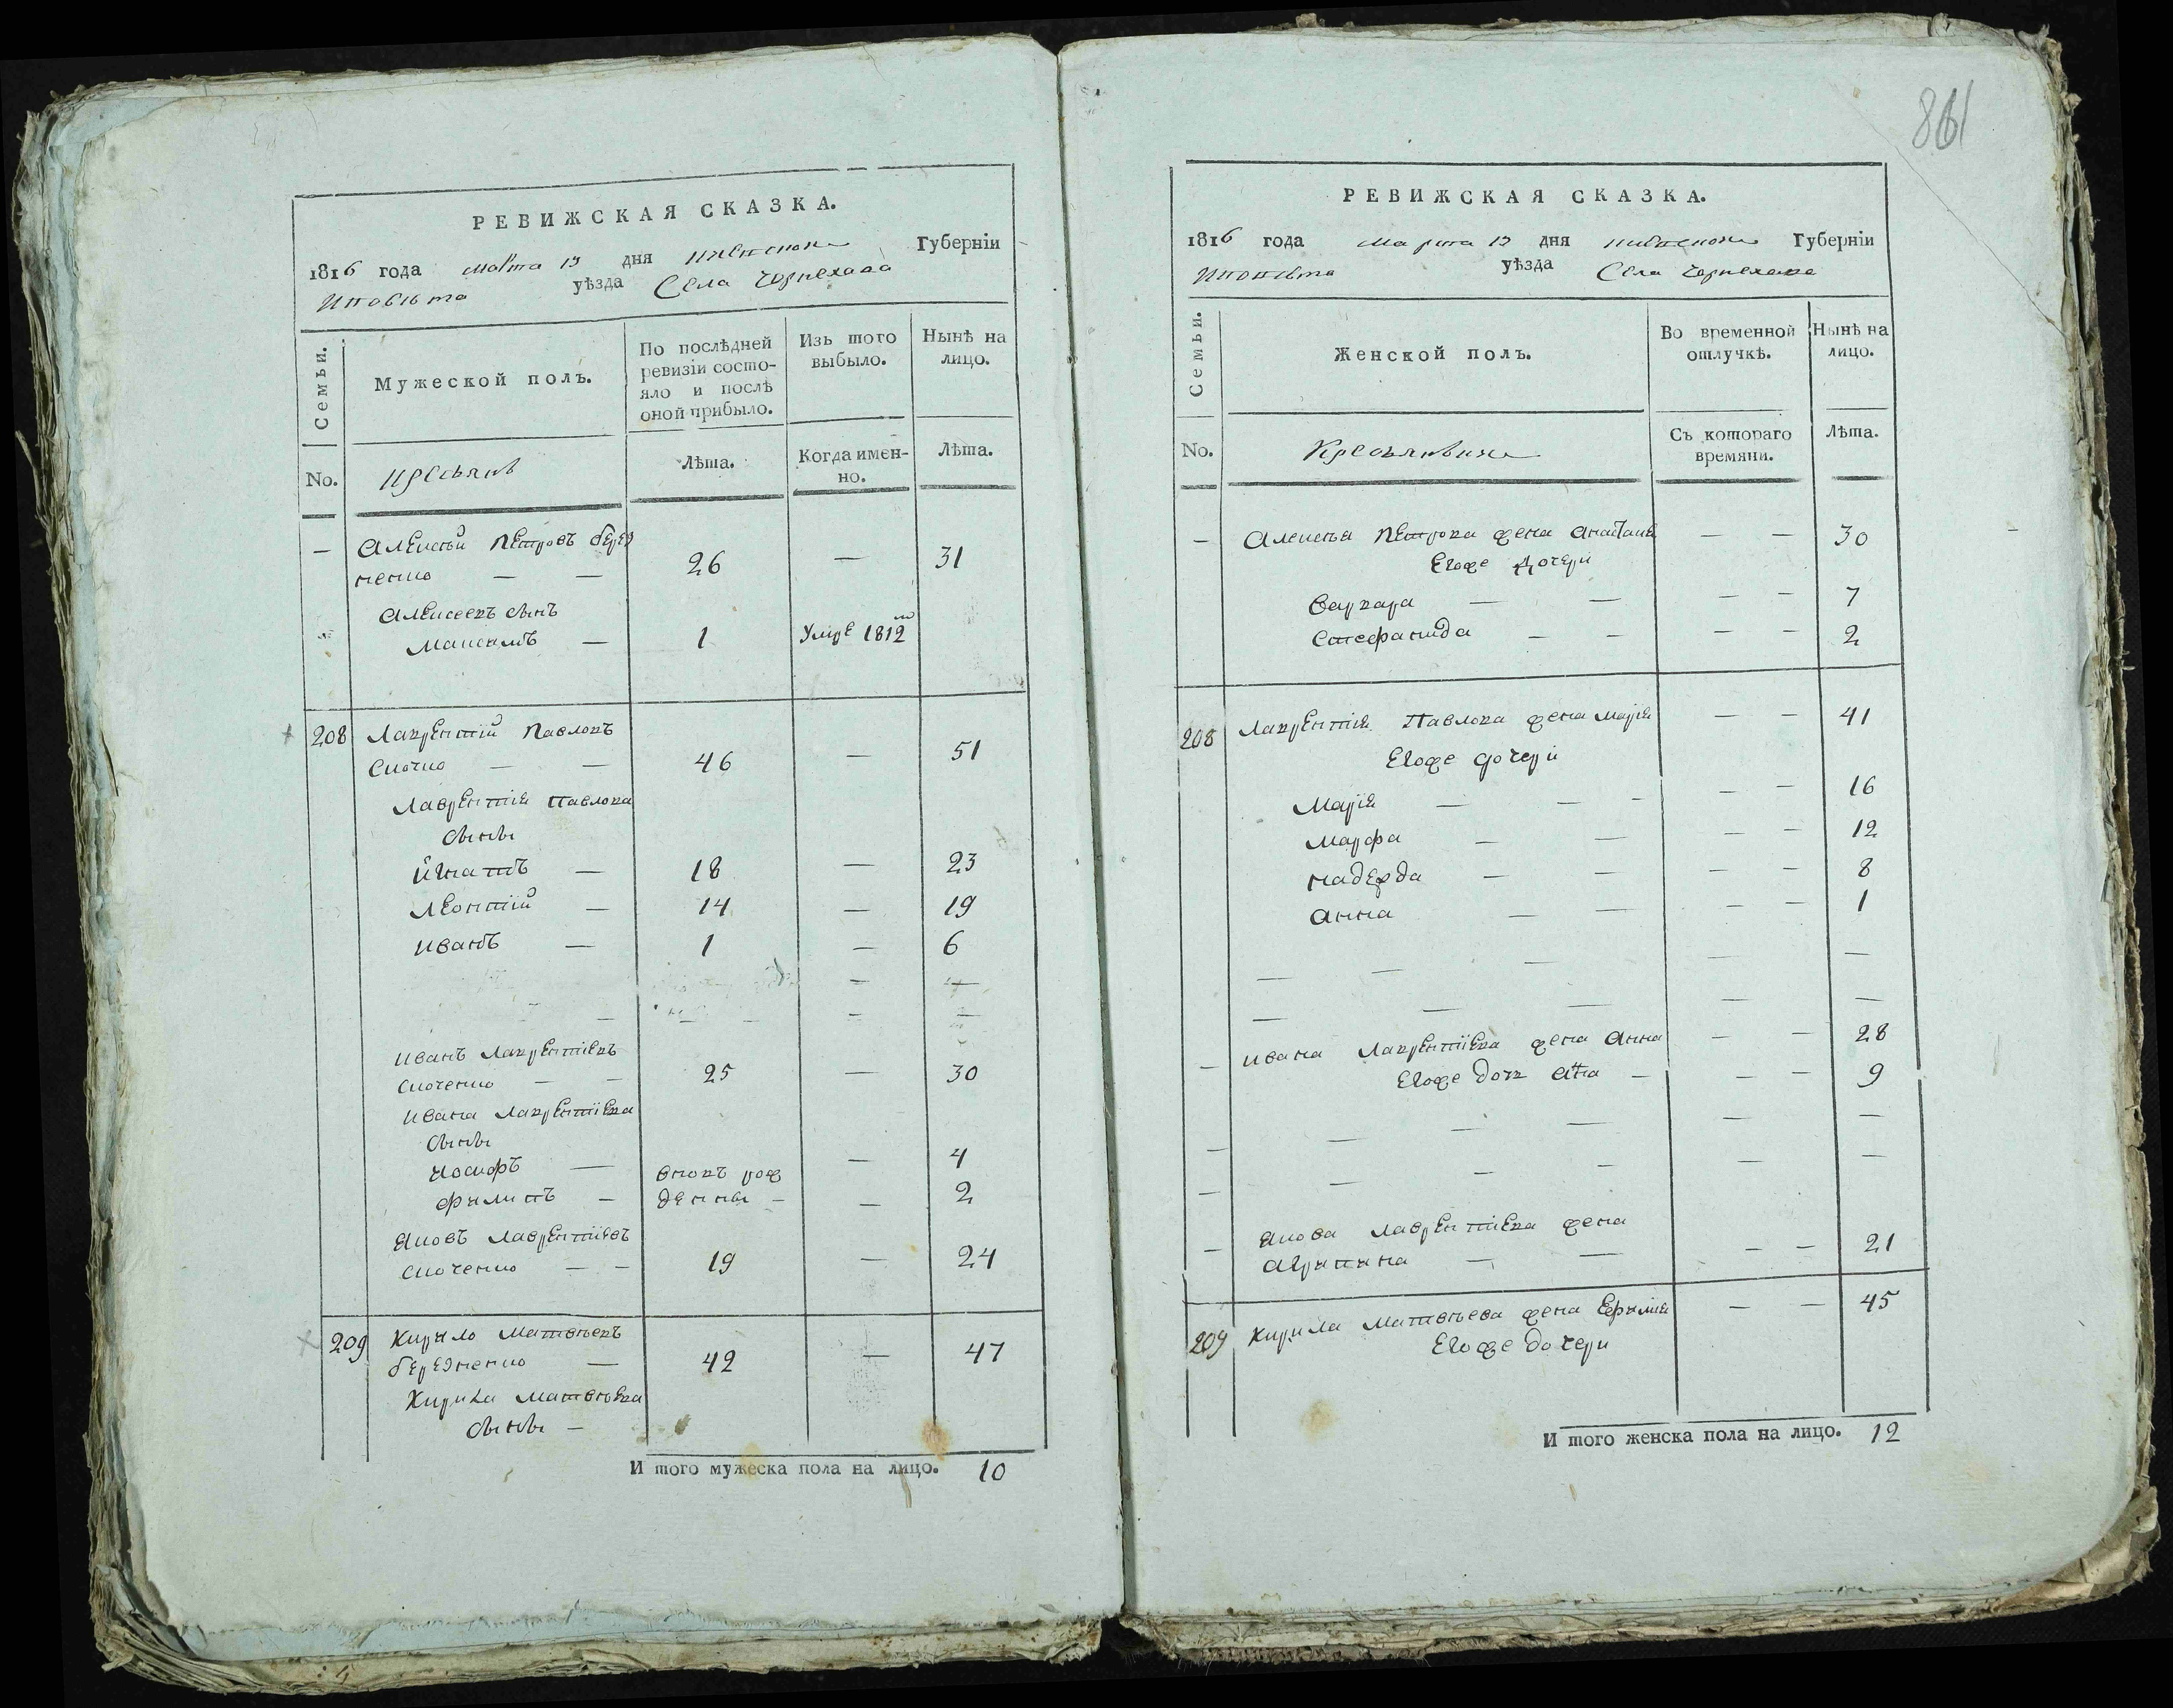 861
РЕВИЖСКАЯ СКАЗКА.
1816 года Марта 13 дня Киевской Губерніи
Иповѣта уѣзда Села Чернехова
Семьи.
Мужеской полъ.
По послѣдней ревизіи состояло и послѣ оной прибыло.
Изъ того выбыло.
Нынѣ на лицо.
No.
Кресьянѣ
Лѣта.
Когда именно.
Лѣта.
— Алексѣй Петровъ берез
ненко — — 26 — 31
Алексеевъ сынъ
Максимъ — 1 Умре 1812
208 Лаврентій Павловъ
Скочко — — 46 — 51
Лаврентія Павлова
сыны
Игнатъ — 18 — 23
Леонтій — 14 — 19
Иванъ — 1 — 6
— —
— — — — —
Иванъ Лаврентіевъ
скоченко — — 25 — 30
Ивана Лаврентіева
сыны
Иосифъ — вновь рож — 4
Филипъ — денны — — 2
Яковъ Лаврентіевъ
скоченко — — 19 — 24
209 Кирило Матвѣевъ
березненко — 42 — 47
Кирила Матвѣева
сыны —
И того мужеска пола на лицо. 10
РЕВИЖСКАЯ СКАЗКА.
1816 года Марта 13 дня Киевской Губерніи
Иповѣта уѣзда Села Чернехова
Семьи.
Женской полъ.
Во временной отлучкѣ.
Нынѣ на лицо.
No.
Кресьянъ
Съ котораго времяни.
Лѣта.
— Алексѣя Петрова жена Анастасия — — 30
Егоже дочери
Варвара — — — — 7
Стефанида — — — — 2
208 Лаврентія Павлова жена Марія — — 41
Егоже дочери
Марія — — - — — 16
Марфа — — — — 12
Надежда — — — — 8
Анна — — — — 1
— — — — —
— — — — —
— Ивана Лаврентіева жена Анна — — 28
Егоже дочь — — — 9
— — — — —
— — — — — —
— Якова Лаврентіева жена
Агрипина — — — — 21
209 Кирила Матвѣева жена Ефимія — — 45
Егоже дочери
И того женска пола на лицо. 12